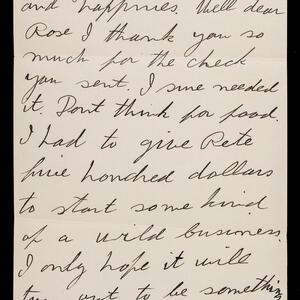 and happines. Well dear
Rose I thank you so
much for the check
you sent. I sure needed
it. Dont think for food.
I had to give Pete
five hondred dollars
to start some kind
of a wild busines.
I only hope it will
out to be something